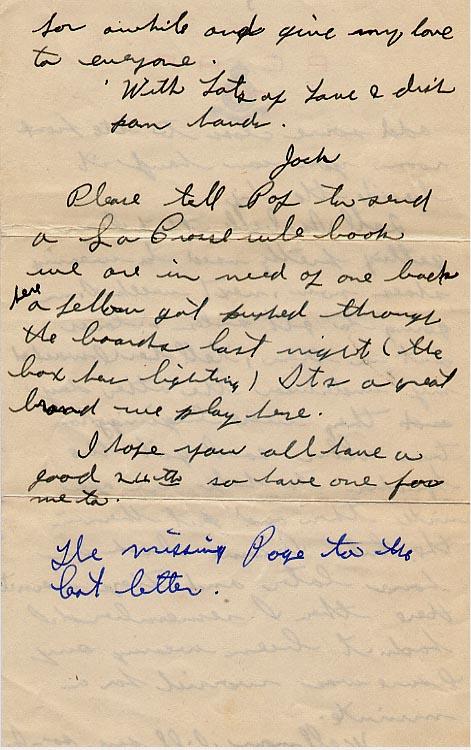 for awhile and give my love
to everyone.
With Lots of Love & dish
pan hands.
Jock
Please tell Pop to send
a La Crosse rule book
we are in need of one back
here
a fellow got pushed through
the boards last night (the
box has lighting) Its a great
brand we play here.
I hope you all have a
good so have one for
me to.
The missing Page to the
last letter.